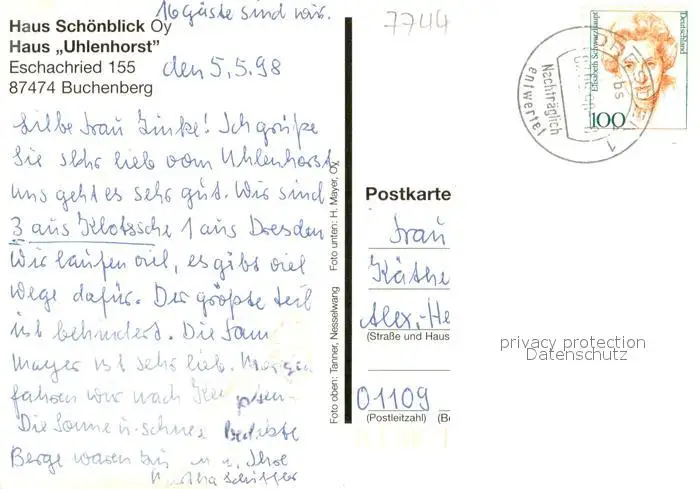 16 Gäste sind wir.
Haus Schönblick Oy
Haus „Uhlenhorst"
Eschachried 155
87474 Buchenberg
den 5.5.98
Liebe Frau Zinke! Ich grüße
Sie sehr lieb vom Uhlenhorst
uns geht es sehr gut. Wir sind
3 aus Klotzsche 1 aus Dresden
Wir laufen viel, es gibt viel
Wege dafür. Der größte teil
ist behindert. Die Fam
mayer ist sehr lieb. Morgen
fahren wir nach
Die Sonne u. schnee
Berge waren Ihre
Martha Schiffer
Foto oben: Tanner, Nesselwang Foto unten: H. Mayer, Oy
7744
DRESDEN
1
bs
Nachträglich
entwertet
Deutschland
Elisabeth Schwarzhaupt
100
Postkarte
Frau
Käthe
Alex.-He
(Straße und Haus
01109
(Postleitzahl) (Be
privacy protection
Datenschutz